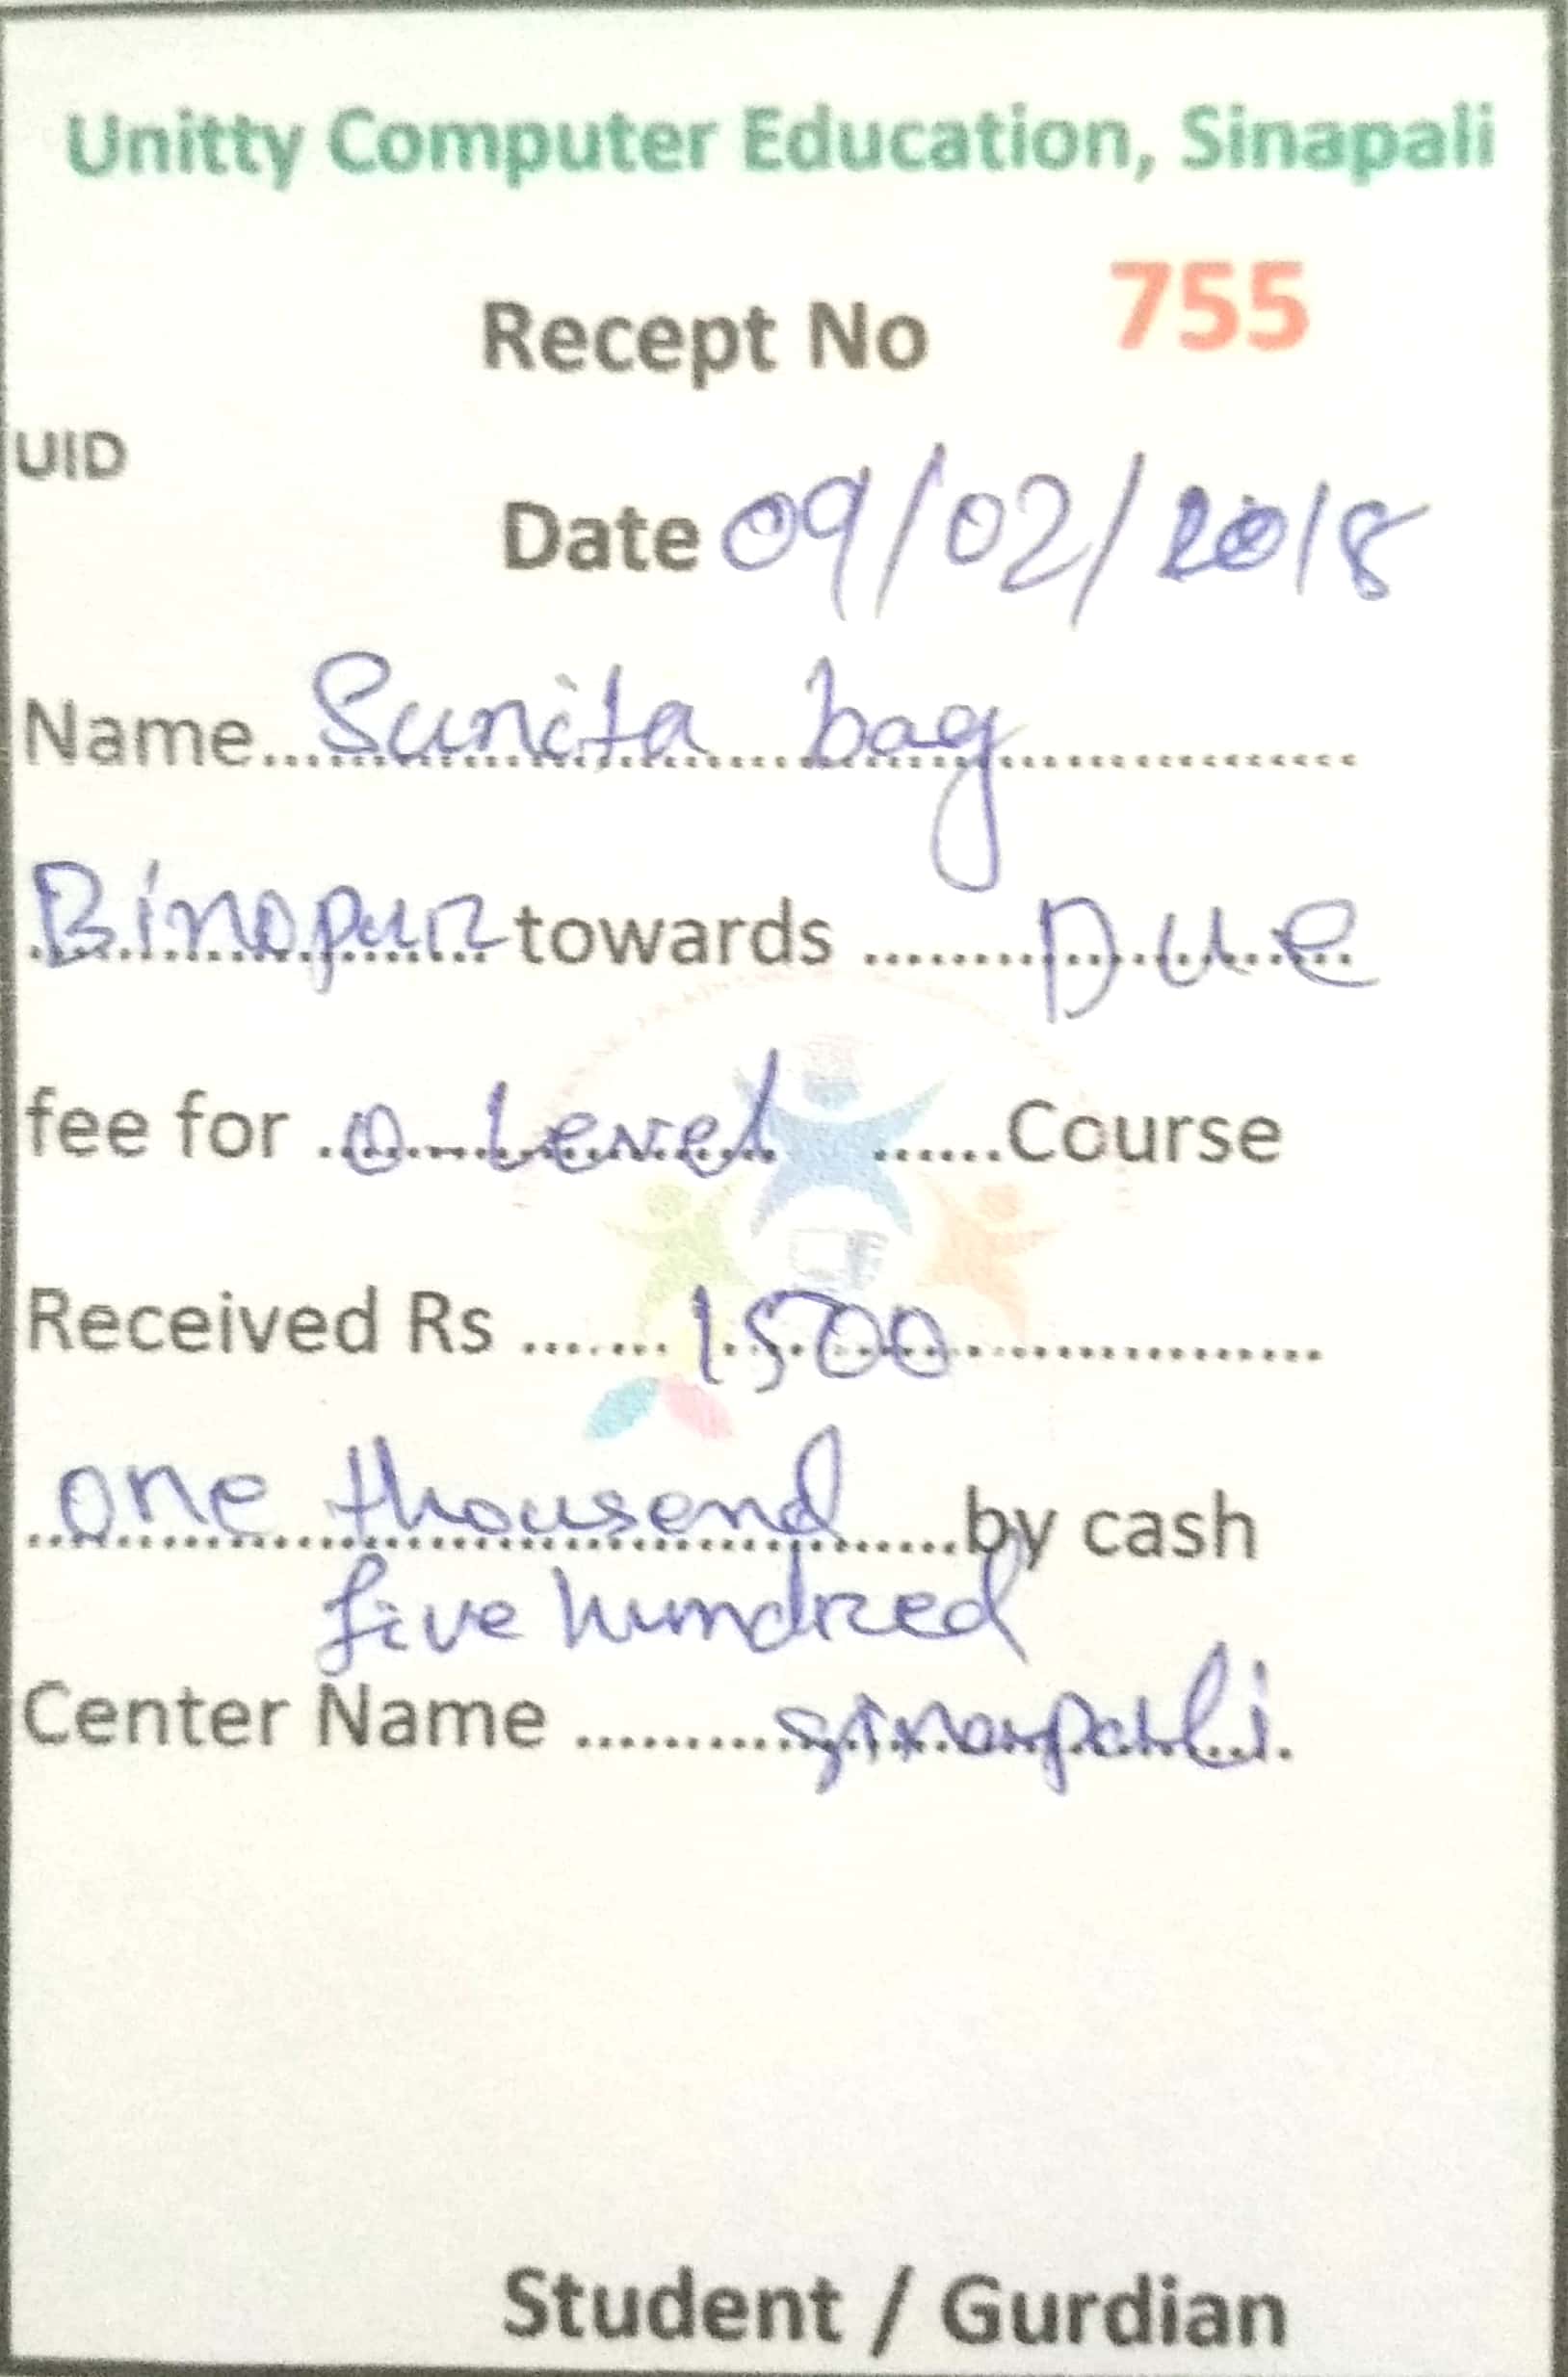 Unitty Computer Education, Sinapali
Recept No 755
UID
Date 09/02/2018
Name Sunita bag
Binopur towards Due
fee for O Level Course
Received Rs 1500
one thousend by cash
five hundred
Center Name sinapali
Student / Gurdian